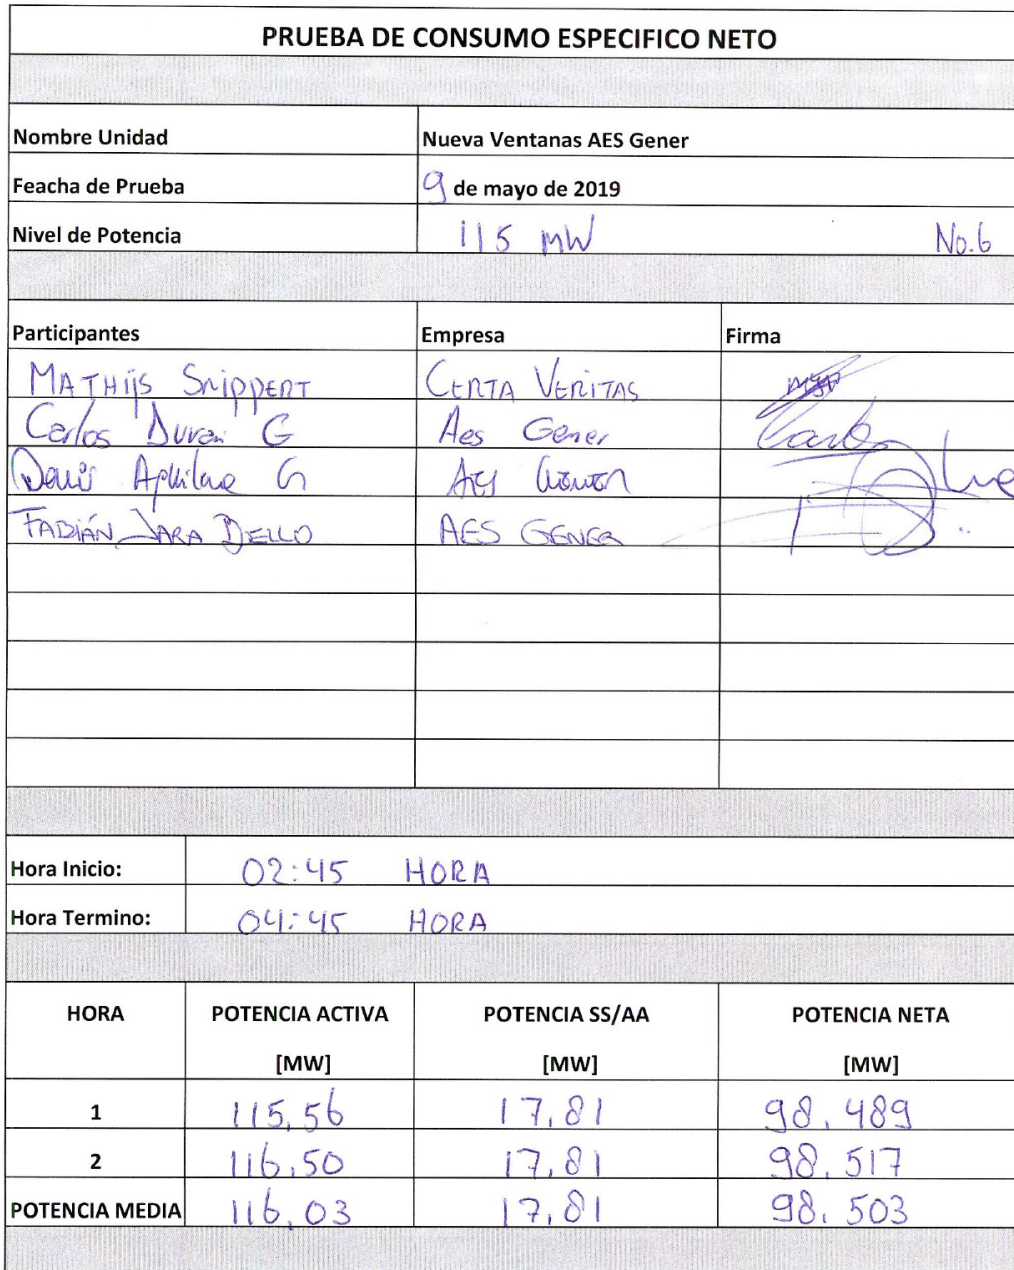 PRUEBA DE CONSUMO ESPECIFICO NETO
Nombre Unidad Nueva Ventanas AES Gener
Feacha de Prueba 9 de mayo de 2019
Nivel de Potencia 115 MW No.6
Participantes Empresa Firma
MATHIJS SNIPPERT CERTA VERITAS
Carlos Duran G Aes Gener
G AES
FABIÁN JARA BELLO AES GENER
Hora Inicio: 02:45 HORA
Hora Termino: 04:45 HORA
HORA POTENCIA ACTIVA POTENCIA SS/AA POTENCIA NETA
[MW] [MW] [MW]
1 115,56 17,81 98,489
2 116,50 17,81 98,517
POTENCIA MEDIA 116,03 17,81 98,503